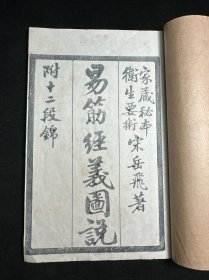 家藏秘本
衛生要術
宋岳飛著
易筋經義圖說
附十二段錦